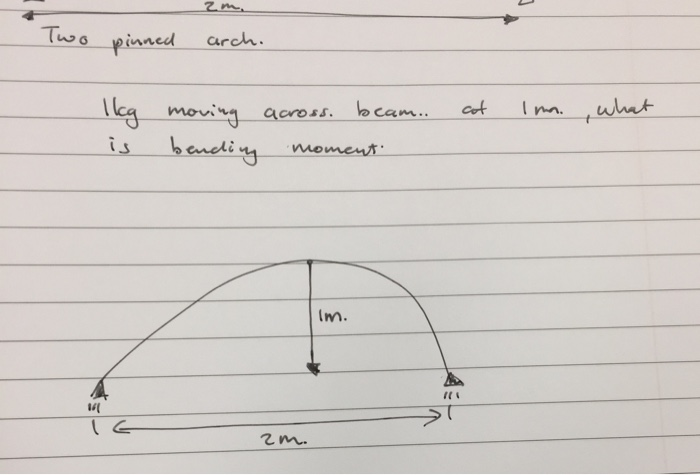 2m.
Two pinned arch.
1kg moving across. beam.. at 1m. , what
is bending moment.
1m.
2m.